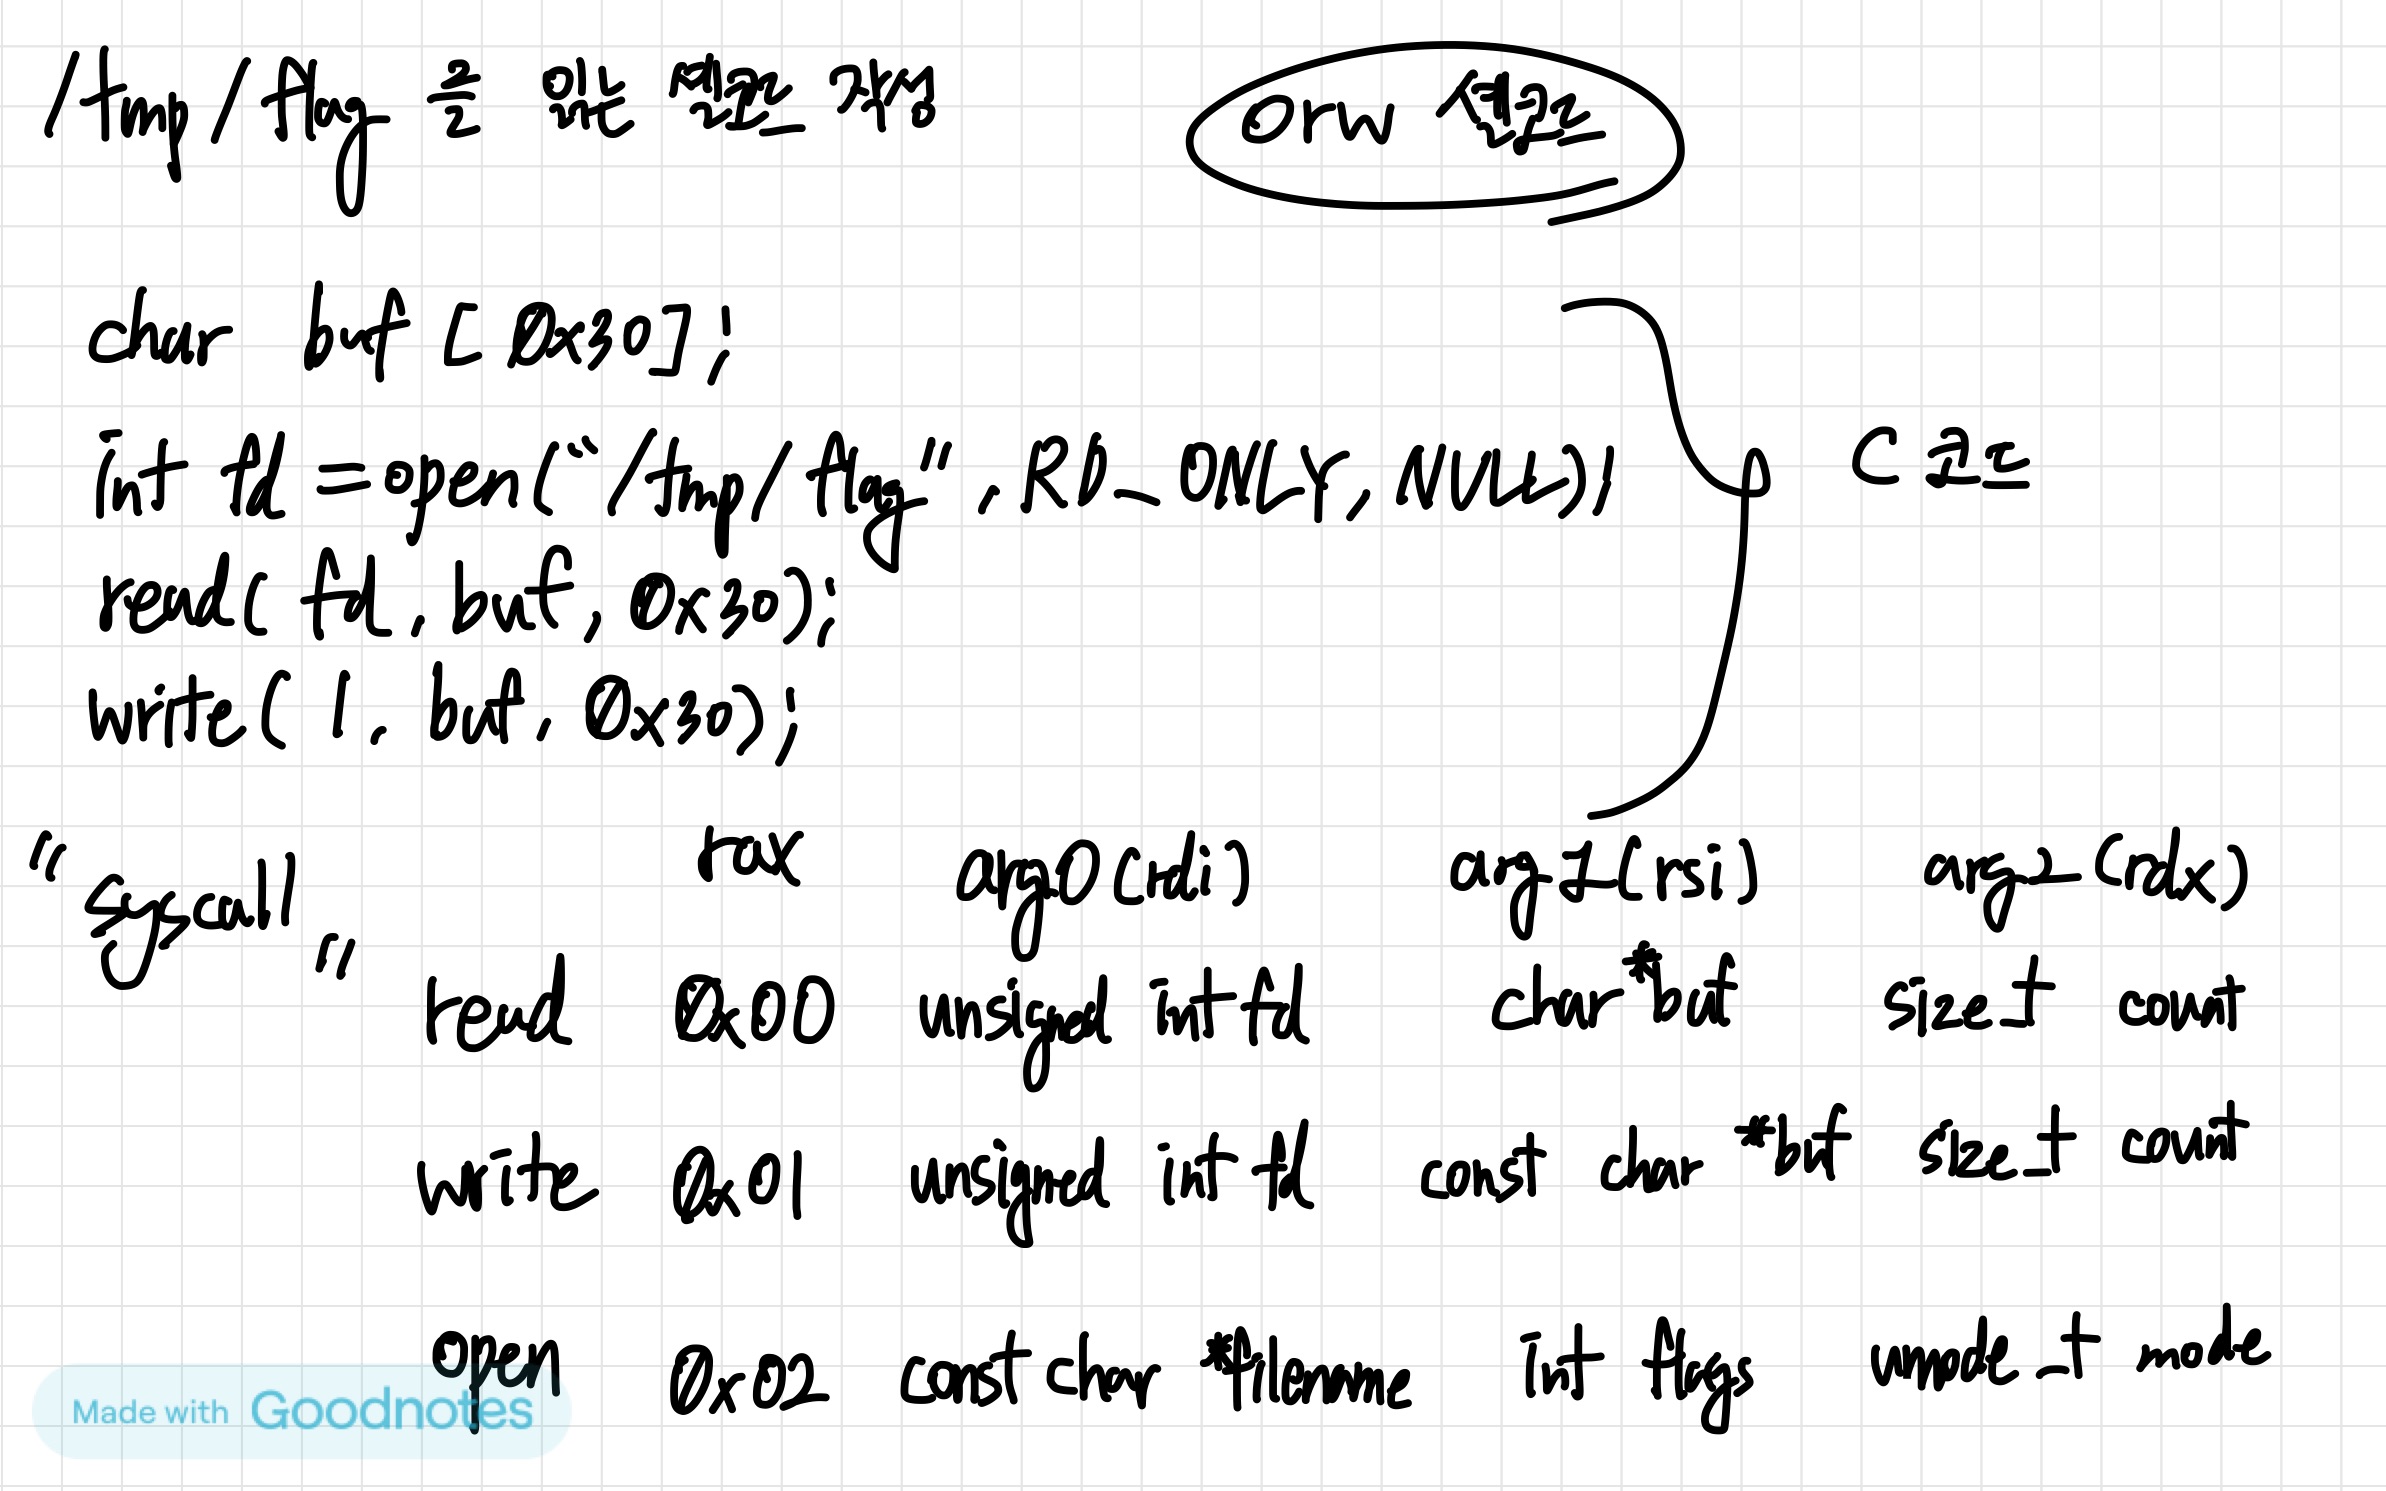 /tmp/flag 를 읽는 셸코드 작성
orw 셸코드
char buf [0x30];
int fd = open("/tmp/flag", RD_ONLY, NULL);
C 코드
read(fd, buf, 0x30);
write(1, buf, 0x30);
"syscall"
rax arg0(rdi) arg1(rsi) arg2(rdx)
read 0x00 unsigned int fd char *buf size_t count
write 0x01 unsigned int fd const char *buf size_t count
open 0x02 const char *filename int flags umode_t mode
Made with Goodnotes